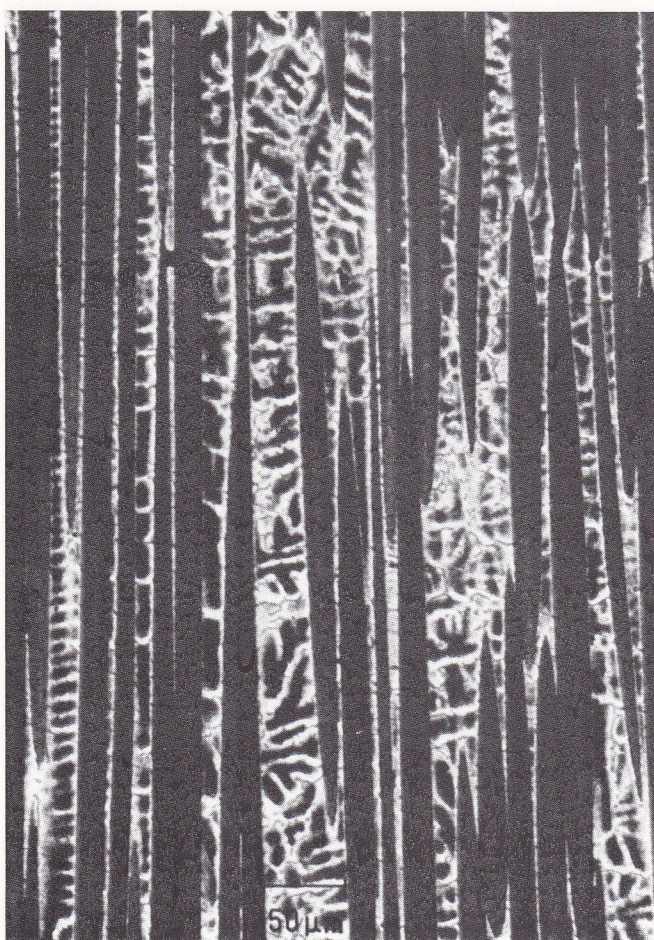 50 μm